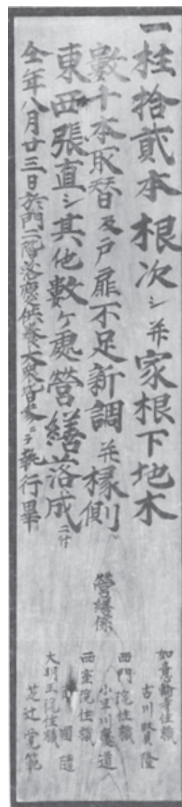 一柱拾貳本根次シ并家根下地木
數十本取替及戸扉不足新調并椽側
東西張直シ其他數ケ處營繕落成ニ付
仝年八月廿三日於門二階落慶供養大衆皆參ニテ執行畢
營繕係
如意輪寺住職
古川賢隆
西門院住職
小早川教道
西室院住職
國隨
大明王院住職
芝辻覚範